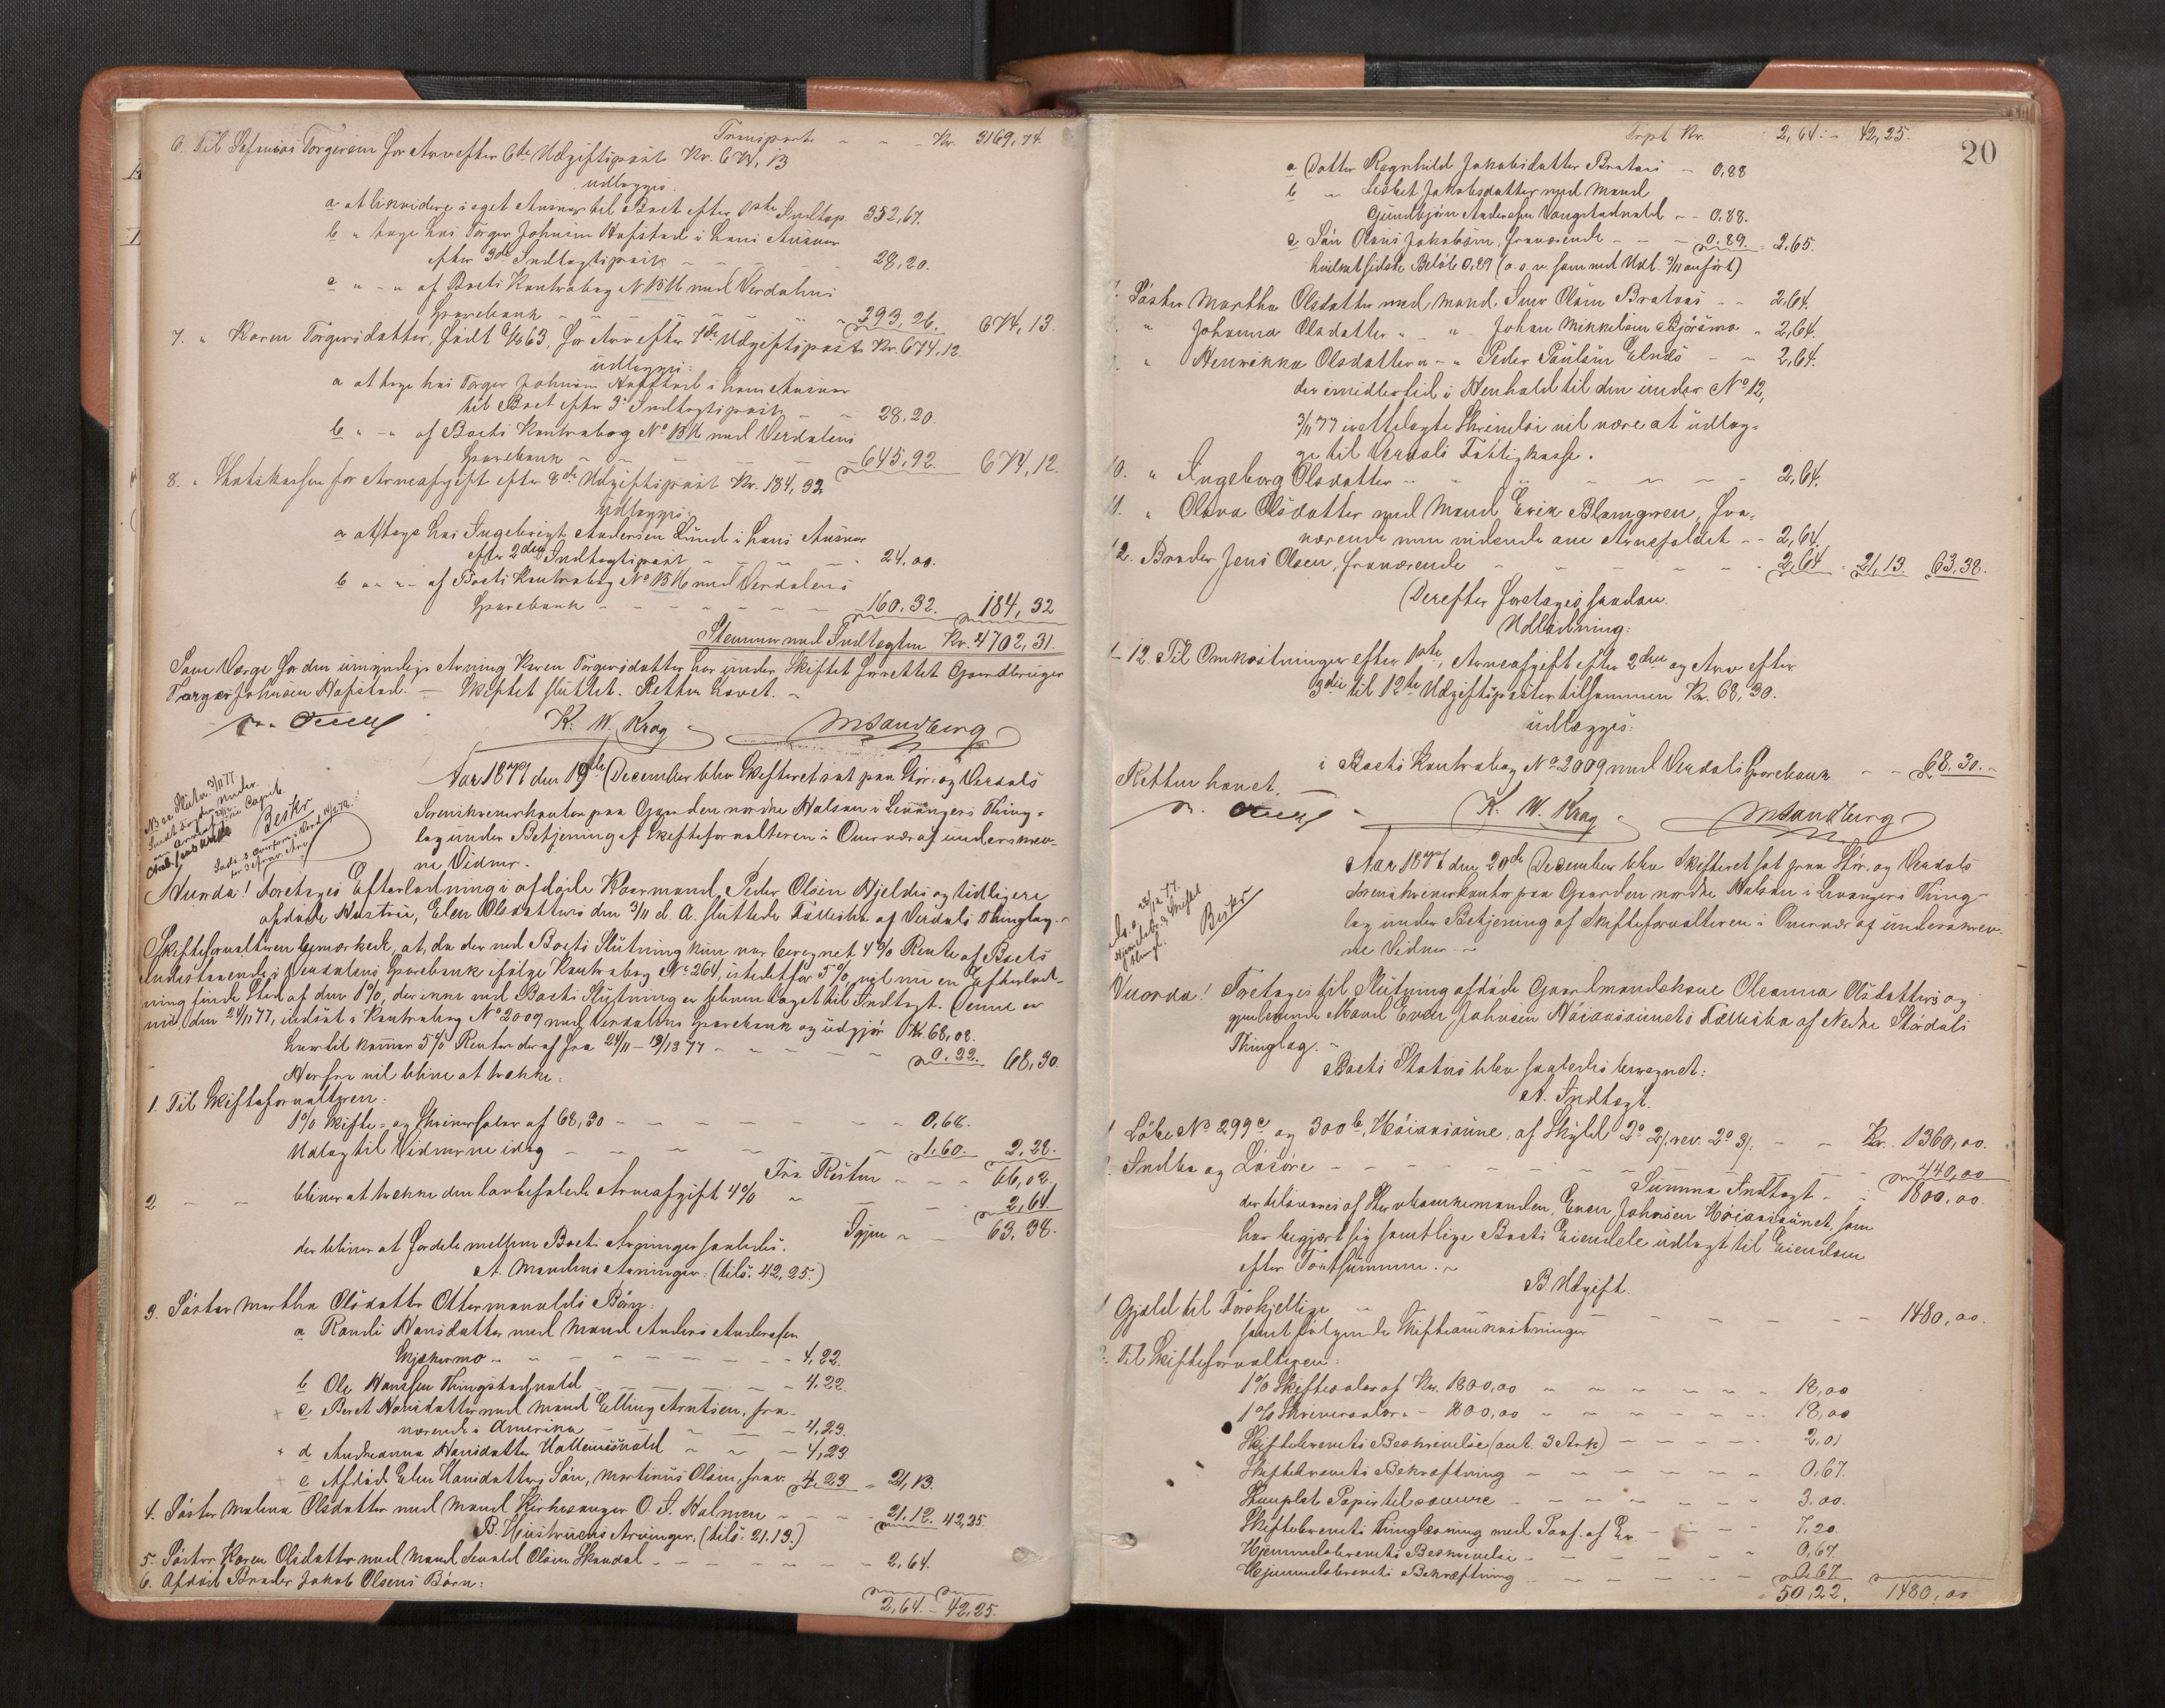 Transport - - Kr. 3169,74.
6. Til Torgersen for Arv efter 6te Udgiftspost Kr. 674,13
udlægges:
a at likvidere i eget Ansvar til Boet efter 1ste Indtgp. 352,67.
b " tage hos Torger Johnsen Hofstad i hans Ansvar
efter 3die Indtægtspost - - - 28,20.
c " - " af Boets Kontrabog No 1516 med Verdalens
Sparebank - - - 293,26. 674,13.
7. " Karen Torgersdatter, født 63, for Arv efter 7de Udgiftspost Kr. 674,12.
udlægges:
a at tage hos Torger Johnsen Hofstad i hans Ansvar
til Boet efter 3die Indtægtspost - - 28,20.
b " - " af Boets Kontrabog No 1516 med Verdalens
Sparebank - - - 645,92. 674,12.
8. " Statskassen for Arveafgift efter 8de Udgiftspost Kr. 184,32
udlægges:
a at tage hos Ingebrigt Andersen Lund i hans Ansvar
efter 2den Indtægtspost - - - 24,00.
b " - " af Boets Kontrabog No 1516 med Verdalens
Sparebank - - - 160,32. 184,32
Stemmer med Indtægten Kr. 4702,31.
Som Værge for den umyndige Arving Karen Torgersdatter har under Skiftet forrettet Gaardbruger
Torger Johnsen Hofstad. - Skiftet sluttet. Retten hævet. -
K. W. Krag M Sandberg
Aar 1877 den 19de December blev Skifteret sat paa Stør- og Verdals
Sorenskriverkontor paa Gaarden nordre Halsan i Levangers Thing-
lag under Betjening af Skifteforvalteren i Overvær af underskrev-
ne Vidner.
Hvorda! Foretages Efterlodning i afdøde Kaarmand, Peder Olsen Hjeldes og tidligere
afdøde Hustru, Elen Olsdatters den 3/11 d. A. sluttede Fællesbo af Verdals Thinglag.-
Skifteforvalteren bemærkede, at, da der ved Boets Slutning kun var beregnet 4% Rente af Boets
Indestaaende i Verdalens Sparebank ifølge Kontrabog No 264, istedetfor 5%, vil nu en Efterlod-
ning finde Sted af den 1%, der ikke ved Boets Slutning er bleven taget til Indtægt. Denne er
nu, den 24/11 77, indsat i Kontrabog No 2009 med Verdalens Sparebank og udgjør Kr. 68,08.
hvortil kommer 5% Renter deraf fra 24/11 - 19/12 77 - - - 0,22. 68,30.
Herfra vil blive at trække:
1. Til Skifteforvalteren:
1% Skifte- og Skriversalær af 68,30 - - - 0,68.
Udlæg til Vidnerne idag - - - 1,60. 2,28.
Fra Resten - - - 66,02
2 - - bliver at trække den lovbefalede Arveafgift 4% - - 2,64
Igjen - - 63,38.
der bliver at fordele mellem Boets Arvinger saaledes:
A. Mandens Arvinger: (tils. 42,25.)
3. Søster Martha Olsdatter Ottermovalds Børn:
a Randi Hansdatter med Mand Anders Andersen
Skjækermo - - - 4,22.
b Ole Hansen Ringstadvald - - - 4,22.
c Beret Hansdatter med Mand Elling Arntsen, fra-
værende i Amerika - - - 4,23.
d Andreanna Hansdatter - - - 4,23
e Afdøde Elen Hansdatters Søn, Martinus Olsen, frav. 4,23 = 21,13.
4. Søster Malena Olsdatter med Mand Kirkesanger O. S. Holmen - - - 21,12. 42,25.
B. Hustruens Arvinger, (tils. 21.13.)
5. Søster Karen Olsdatter med Mand Sevald Olsen Skavdal - - - 2,64.
6. Afdøde Broder Jakob Olsens Børn:
2,64. - 42,25.
20
Trpt Kr. 2,64. - 42,25.
a Datter Ragnhild Jakobsdatter Brataas - 0,88
b " Lisbet Jakobsdatter med Mand
Gundbjørn Andersen Vangstadvald - - 0,88.
c Søn Olaus Jakobsen, fraværende - - 0.89. = 2,65.
hvilket sidste Beløb 0,89 (o. s. v. som ved Udl. 3/11 anført)
7. Søster Martha Olsdatter med Mand Iver Olsen Brataas - - 2,64.
" Johanna Olsdatter " " Johan Mikkelsen Bjørsmo " 2,64.
" Henrikka Olsdatter " - " Peder Paulsen Elnæs - - 2,64.
der imidlertid i Henhold til den under No 12,
3/11 77 irettelagte Skrivelse vil være at udlæg-
ge til Verdals Fattigkasse.
10. " Ingeborg Olsdatter - - - 2,64.
11. " Olava Olsdatter med Mand Erik Blomgren, fra-
værende men vidende om Arvefaldet - - 2,64.
12. Broder Jens Olsen, fraværende - - - 2,64 = 21,13. 63,38.
Derefter foretages saadan
Udlodning:
1-12. Til Omkostninger efter 1ste, Arveafgift efter 2den og Arv efter
3die til 12te Udgiftsposter tilsammen Kr. 68,30.
udlægges:
i Boets Kontrabog No 2009 med Verdals Sparebank - - 68.30.-
Retten hævet.
K. W. Krag M Sandberg
Aar 1877 den 20de December blev Skifteret sat paa Stør- og Verdals
Sorenskriverkontor paa Gaarden nordre Halsan i Levangers Thing-
lag under Betjening af Skifteforvalteren i Overvær af underskrev-
ne Vidner. -
Hvorda! Foretages til Slutning afdøde Gaardmandskone Oleanna Olsdatters og
gjenlevende Mand Even Johnsen Høiaasaunets Fællesbo af Nedre Størdals
Thinglag. -
Boets Status blev saaledes beregnet:
A. Indtægt.
1 Løbe No 299a og 300b, Høiaasaune, af Skyld - - Kr. 1360,00.
2. Indbo og Løsøre - - - 440,00
Summa Indtægt - - 1800,00.
der tilsvares af Enkemanden, Even Johnsen Høiaasaunet, som
har begjært sig samtlige Boets Eiendele udlagt til Eiendom
efter Taxtsummen. -
B. Udgift.
1 Gjæld til Forskjellige - - - 1480,00.
samt følgende Skifteomkostninger
2. Til Skifteforvalteren:
1% Skiftesalær af Kr. 1800,00 - - - 18,00
1% Skriversalær " - 1800,00 - - - 18,00
Skiftebrevets Beskrivelse (ant. 3 Ark) - - - 2,01
Skiftebrevets Bekræftning - - - 0,67.
Stemplet Papir til samme - - - 3.00.
Skiftebrevets Thinglæsning med Part. af - - - 7,20.
Hjemmelsbrevets Beskrivelse - - - 0,67.
Hjemmelsbrevets Bekræftning - - - 0,67
50,22. 1480,00